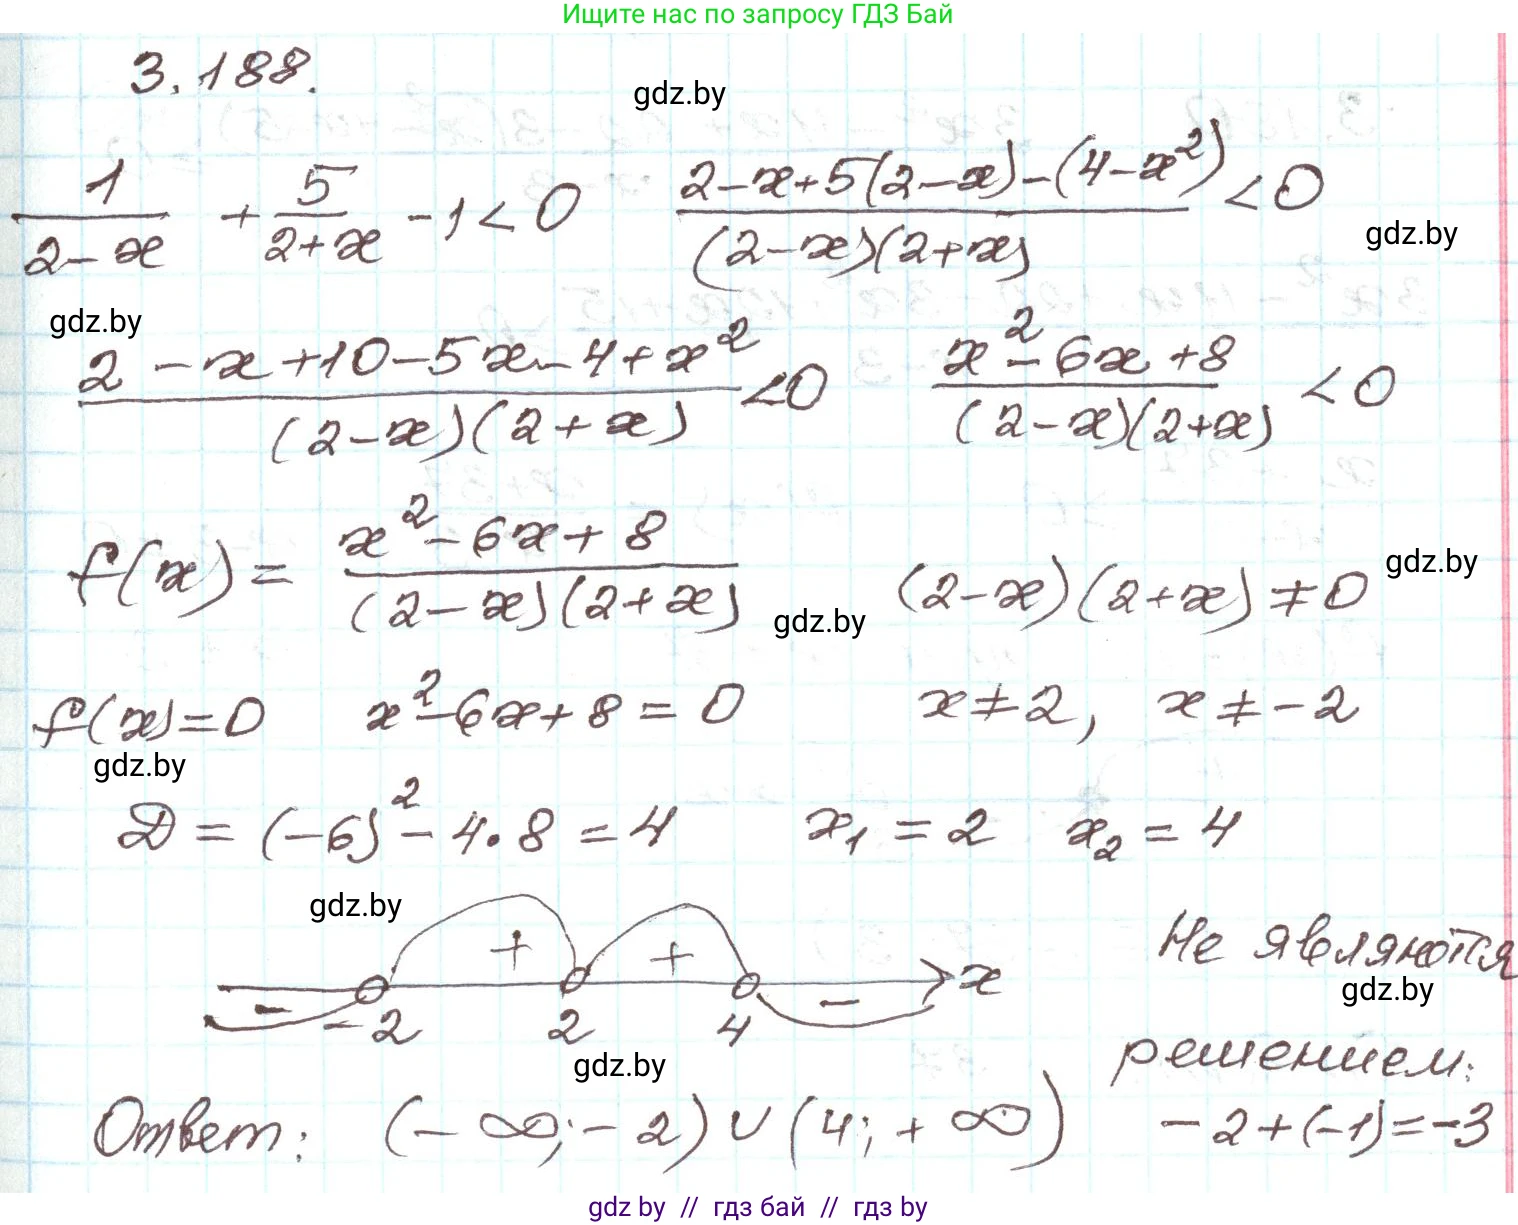 Ищите нас по запросу ГДЗ Бай
3.188.
gdz.by
1/(2-x) + 5/(2+x) - 1 < 0 (2-x+5(2-x)-(4-x²))/((2-x)(2+x)) < 0
gdz.by
gdz.by
(2-x+10-5x-4+x²)/((2-x)(2+x)) < 0 (x²-6x+8)/((2-x)(2+x)) < 0
f(x) = (x²-6x+8)/((2-x)(2+x)) (2-x)(2+x) ≠ 0
gdz.by
gdz.by
f(x)=0 x²-6x+8=0 x≠2, x≠-2
gdz.by
D = (-6)²-4·8=4 x₁=2 x₂=4
gdz.by
+ + x
- -2 2 4 -
Не являются
gdz.by
решением:
gdz.by
Ответ: (-∞;-2)∪(4;+∞) -2+(-1)=-3
gdz by // гдз бай // гдз by